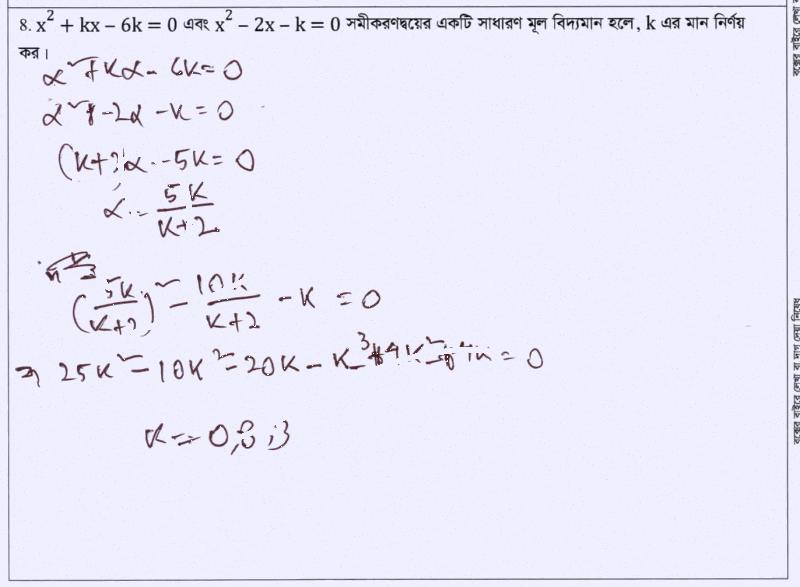 8. x² + kx − 6k = 0 এবং x² − 2x − k = 0 সমীকরণদ্বয়ের একটি সাধারণ মূল বিদ্যমান হলে, k এর মান নির্ণয়
কর।
α² + kα − 6k = 0
α² + −2α − k = 0
(k+2)α − 5k = 0
α = 5k/(k+2)
(5k/(k+2))² − 10k/(k+2) − k = 0
⇒ 25k² − 10k² − 20k − k³ 4k² = 0
k = 0, 8, 3